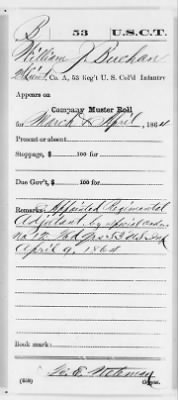 B 53 U.S.C.T.
William J. Buchan
Co. A, 53 Reg't U. S. Col'd Infantry
Appears on
Company Muster Roll
for March & April, 1864
Present or absent
Stoppage, $ 100 for
Due Gov't, $ 100 for
Remarks: Appointed Regimental
Adjutant by special order
no Hd Qrs 53 U.S.
April 9, 1864
Book mark:
(358) Copyist.